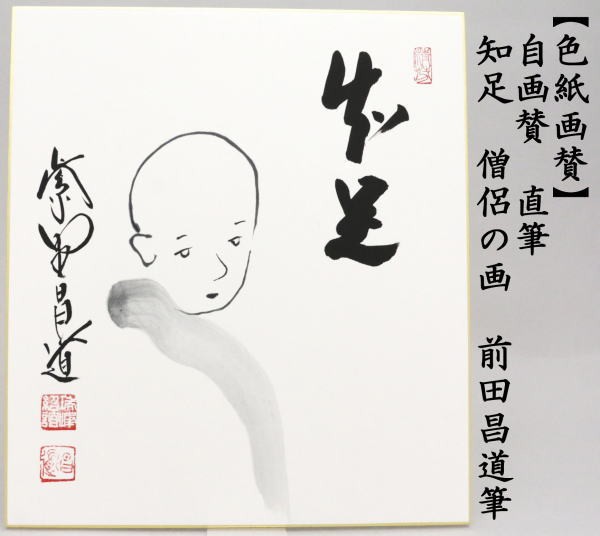 【色紙画賛】
自画賛 直筆
知足 僧侶の画 前田昌道筆
知足
紫野昌道